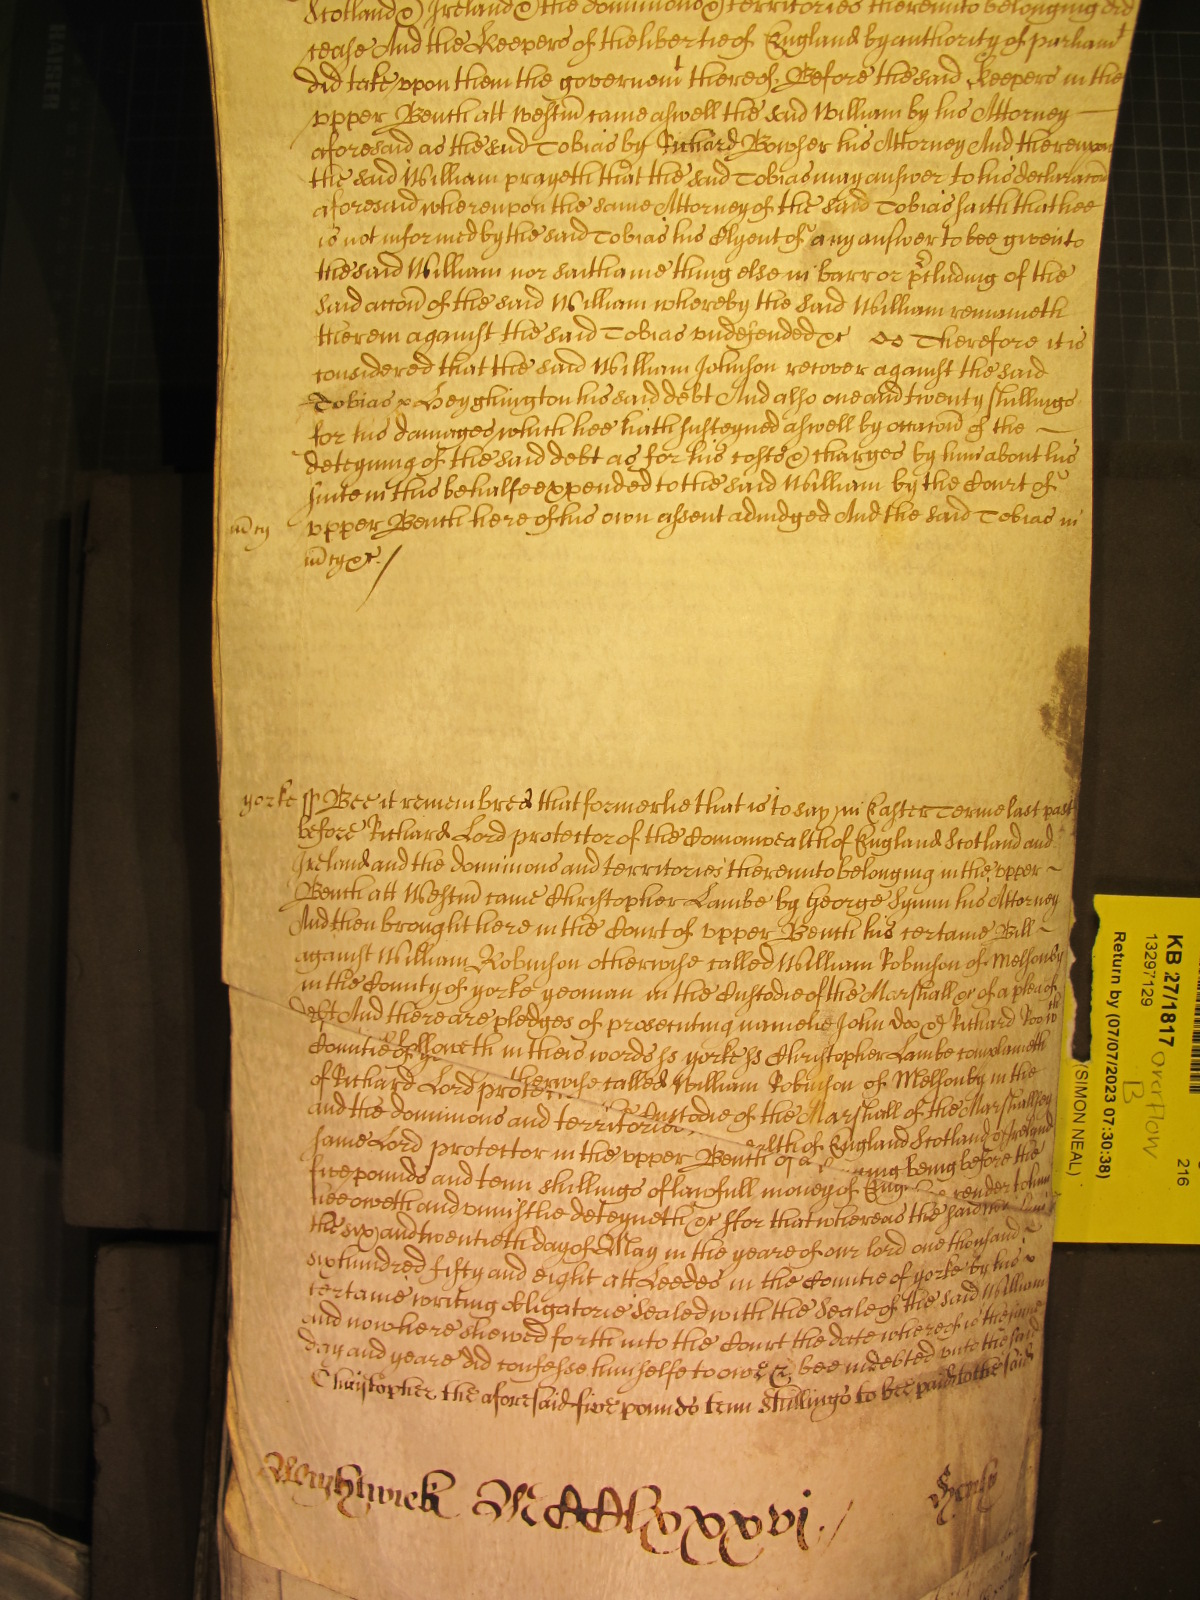 Scotland & Ireland & the dominions & territories thereunto belonging did
cease And the Keepers of the libertie of England by authority of parliamt
did take vpon them the governemt thereof. Before the said Keepers in the
vpper Bench att Westm̄ came aswell the said William by his Attorney
aforesaid as the said Tobias by Richard Bowher his Attorney And thereupon
the said William prayeth that the said Tobias may answer to his declaracon
aforesaid whereupon the same Attorney of the said Tobias saith that hee
is not informed by the said Tobias his Clyent of any answer to bee given to
the said William nor saith anie thing else in barr or p̄cluding of the
said accon̄ of the said William whereby the said William remaineth
therein against the said Tobias vndefended &c Therefore it is
considered that the said William Johnson recover against the said
Tobias his said debt And also one and twenty shillings
for his damages which hee hath susteyned aswell by occacon̄ of the
deteyning of the said debt as for his costs & charges by him about his
suite in this behalfe expended to the said William by the Court of
vpper Bench here of his own assent adiudged And the said Tobias in
m̄cy
m̄cy &c /
yorke ss Bee it remembred that formerlie that is to say in Easter Terme last past
before Richard Lord protector of the Comonwealth of England Scotland and
Ireland and the dominions and territories thereunto belonging in the vpper
Bench att Westm̄ came Christopher Lambe by George his Attorney
And then brought here in the Court of vpper Bench his certaine Bill
against William Robinson otherwise called William Robinson of Melsonby
in the County of yorke yeoman in the Custodie of the Marshall &c of a plea of
debt And there are pledges of prosecuting namelie John doo & Richard Roo wch
followeth in theis words ss yorke ss Christopher Lambe complaineth
Countie of
herwise called William Robinson of Melsonby in the
of Richard Lord protec
Custodie of the Marshall of the Marshallsey
and the dominions and territories
ealth of England Scotland & Ireland
same Lord protector in the vpper Bench of a being before the
five pounds and tenn shillings of lawfull money of Eng render to him
hee oweth and vniustlie deteyneth &c ffor that whereas the said
the six and twentieth day of May in the yeare of our lord one thousand
six hundred fifty and eight att Leedes in the Countie of yorke by his
certaine writing obligatorie sealed with the seale of the said William
and now here shewed forth into the Court the date whereof is the same
day and yeare did confesse himselfe to owe & bee indebted vnto the said
Christopher the aforesaid five pounds tenn shillings to bee paid to the said
Wightwick MCClxxxvi. /
KB 27/1817
13297129
overflow
B
216
Return by (07/07/2023 07:30:38)
(SIMON NEAL)